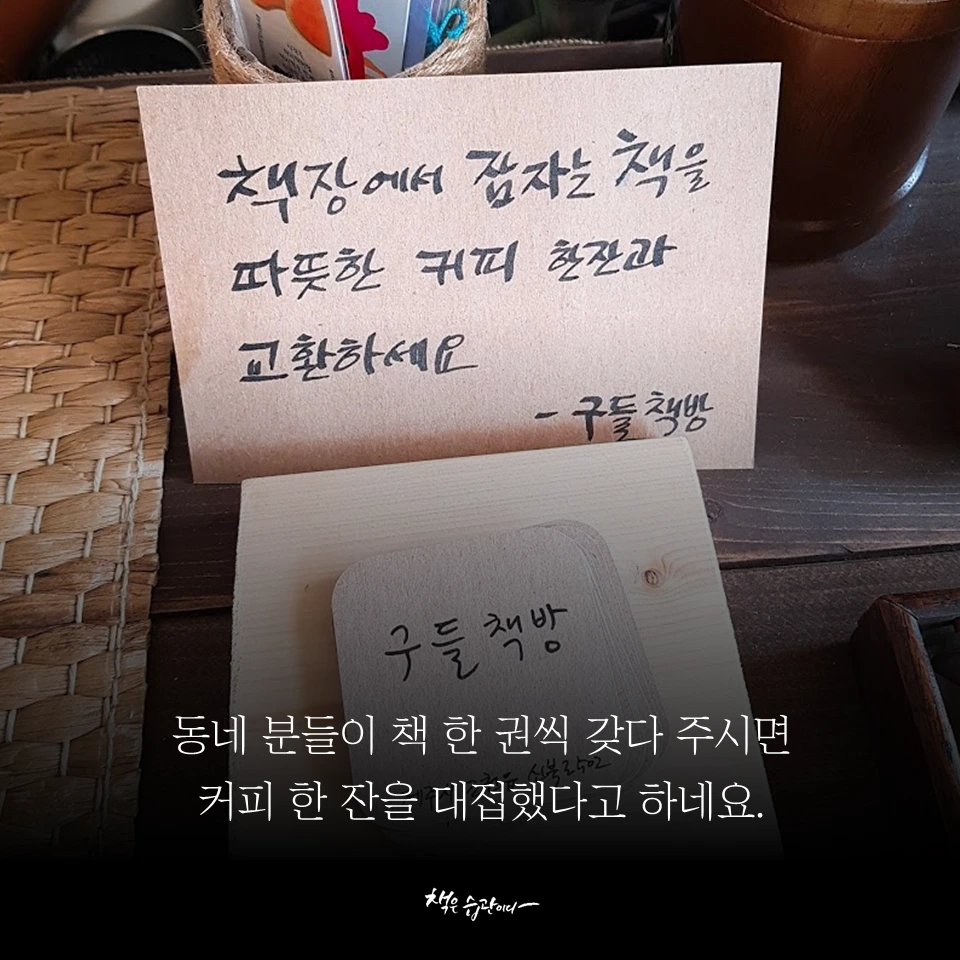 책장에서 잠자는 책을
따뜻한 커피 한잔과
교환하세요
- 구들책방
구들책방
동네 분들이 책 한 권씩 갖다 주시면
커피 한 잔을 대접했다고 하네요.
책은 습관이다